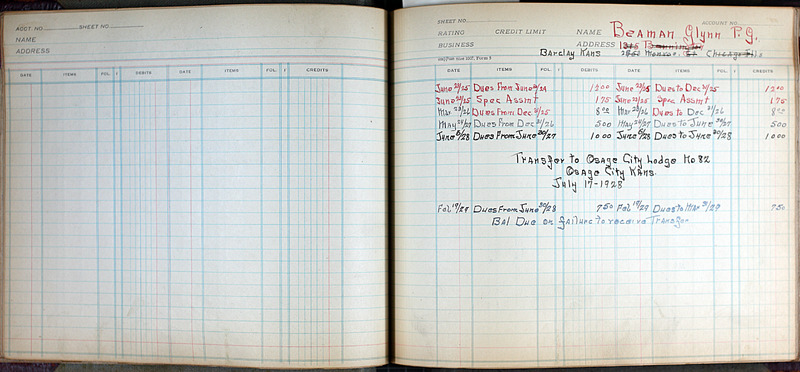 ACCT. NO. SHEET NO.
NAME
ADDRESS
DATE ITEMS FOL. DEBITS DATE ITEMS FOL. CREDITS
SHEET NO. ACCOUNT NO.
RATING CREDIT LIMIT NAME Beaman Glynn P.G.
BUSINESS ADDRESS 1315 Bennington
Barclay Kans Monroe St Chicago Ills
DATE ITEMS FOL. DEBITS DATE ITEMS FOL. CREDITS
June 23/25 Dues From June 30/24 1200 June 23/25 Dues to Dec 31/25 1200
June 23/25 Spec Assmt 175 June 23/25 Spec Assmt 175
Mar 23/26 Dues From Dec 31/25 800 Mar 23/26 Dues to Dec 31/26 800
May 24/27 Dues From Dec 31/26 500 May 24/27 Dues to June 30/27 500
June 6/28 Dues From June 30/27 1000 June 6/28 Dues to June 30/28 1000
Transfer to Osage City Lodge No 82
Osage City Kans.
July 17-1928
Feb 19/29 Dues From June 30/28 750 Feb 19/29 Dues to Mar 31/29 750
Bal Due on failure to receive Transfer